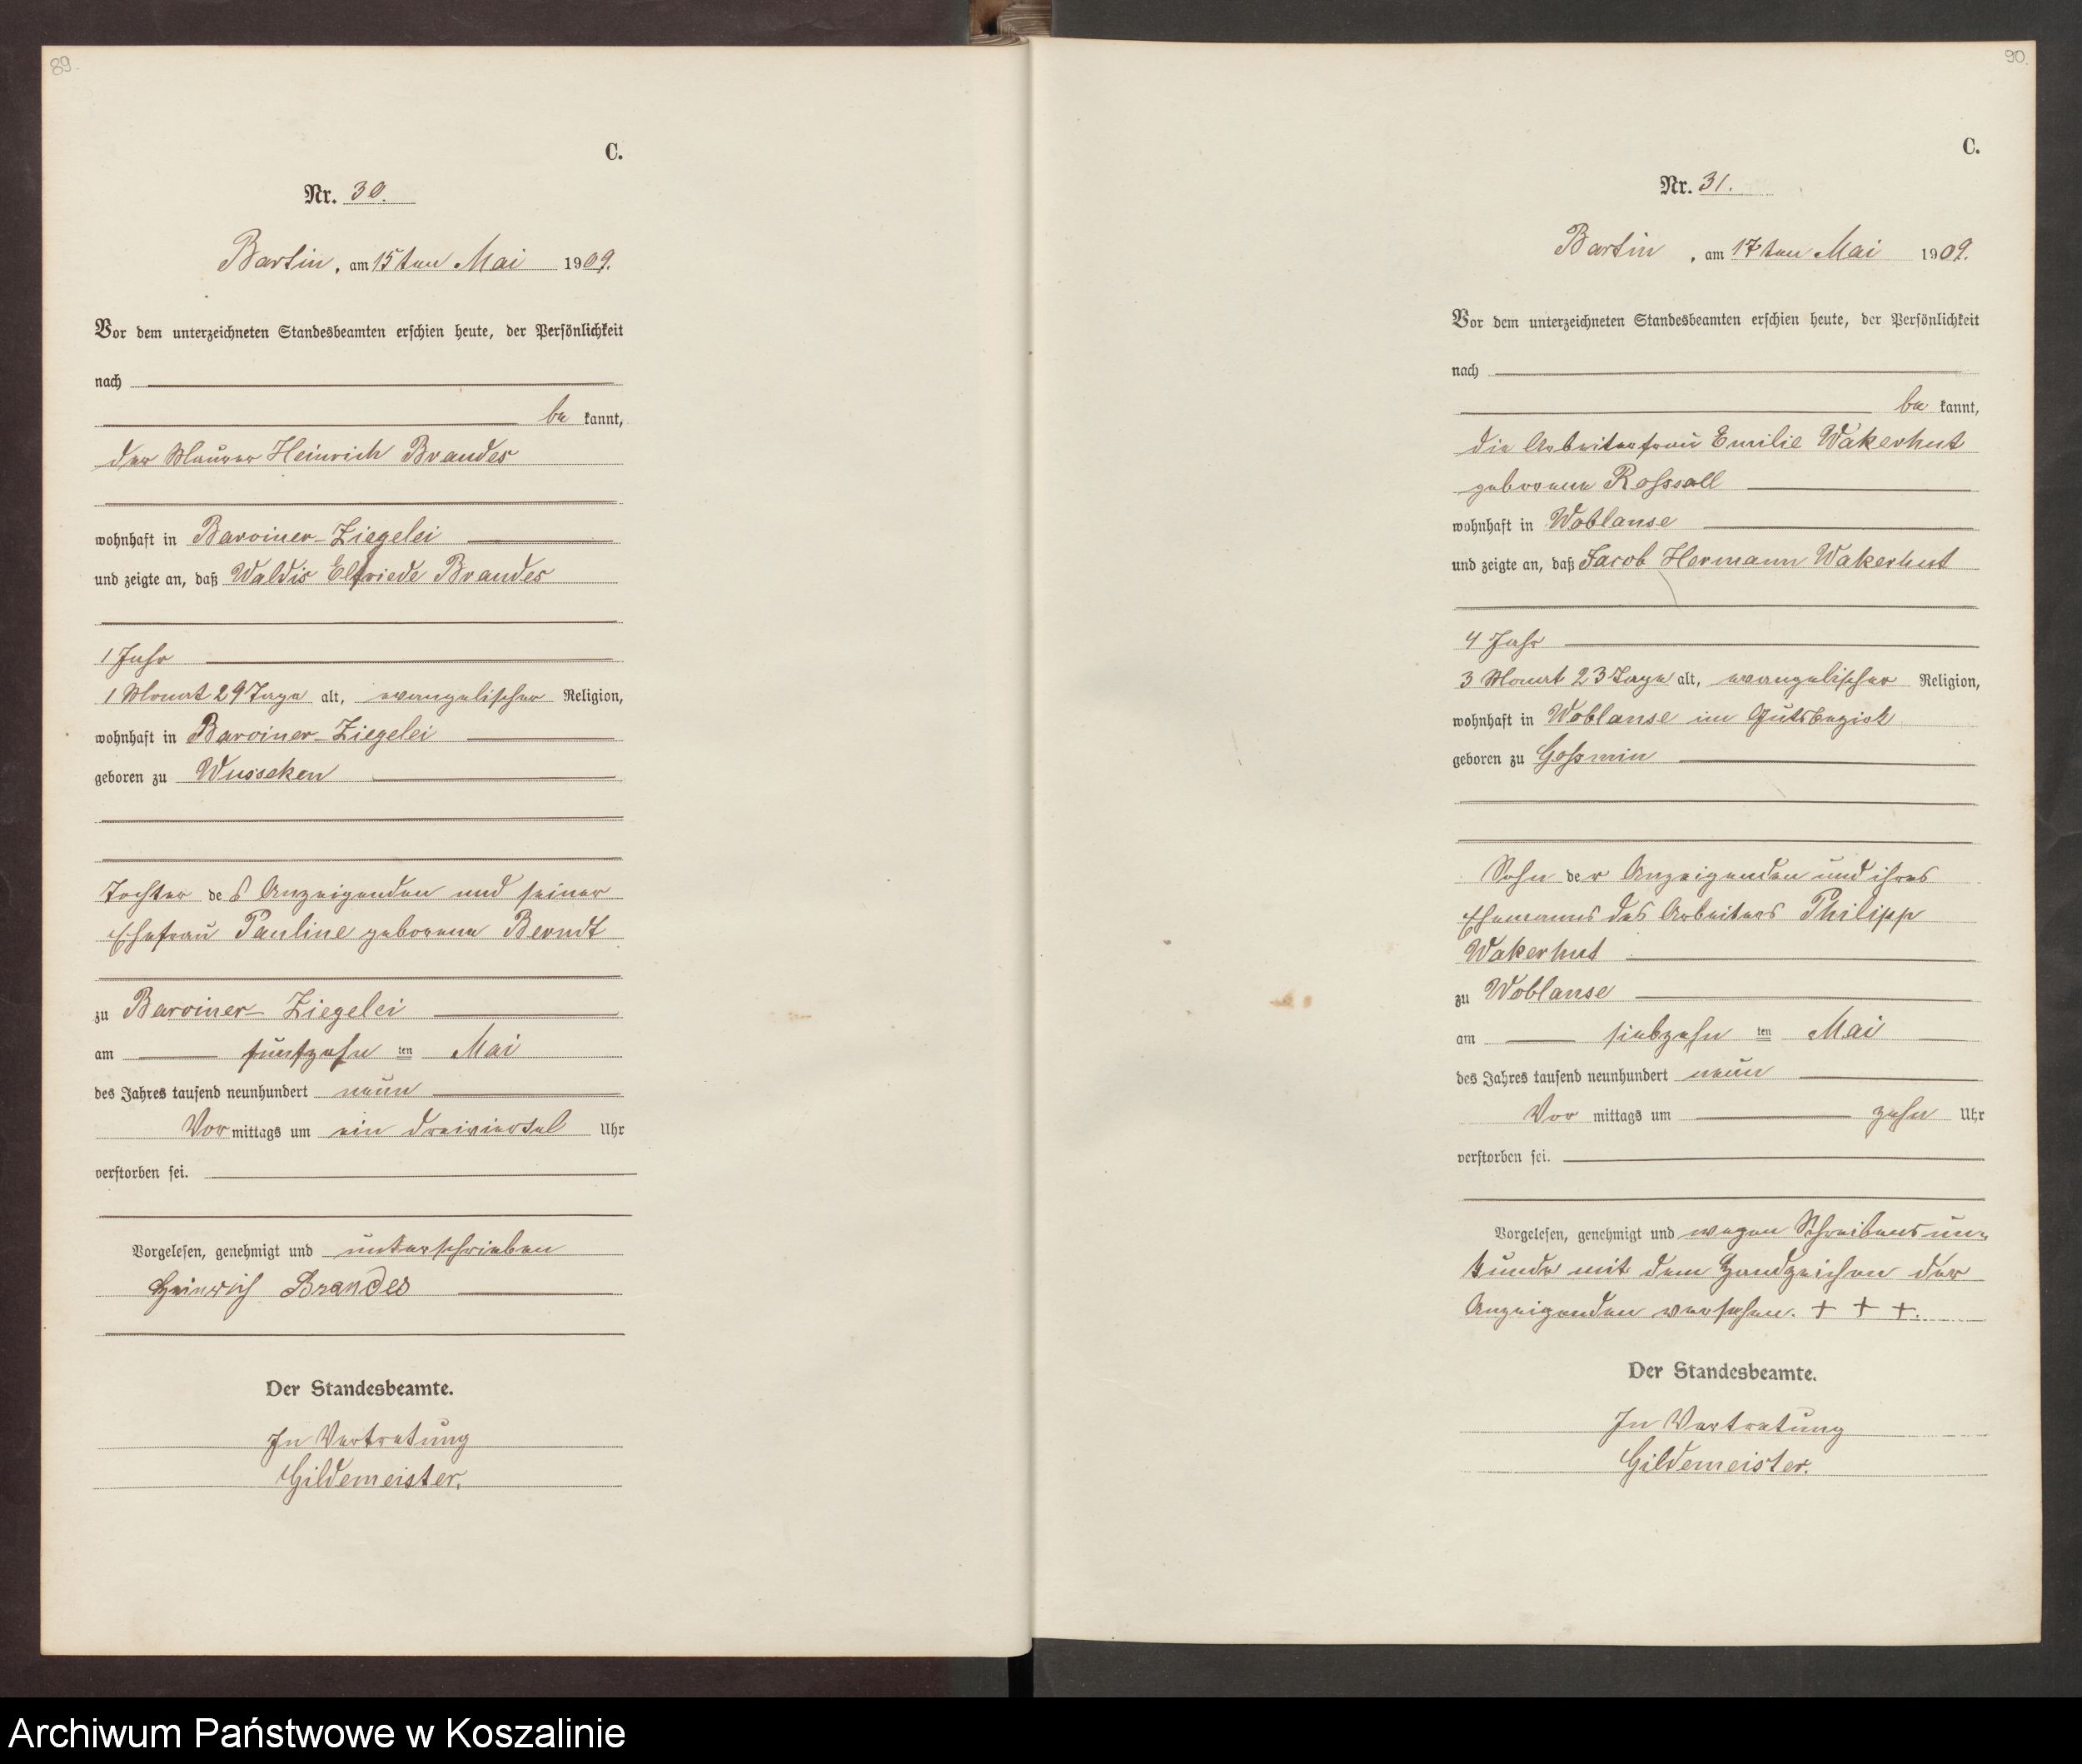 89.
C.
Nr. 30.
Bartin, am 15ten Mai 1909.
Vor dem unterzeichneten Standesbeamten erschien heute, der Persönlichkeit
nach
be kannt,
der Maurer Heinrich Brandes
wohnhaft in Barviner-Ziegelei
und zeigte an, daß Waldis Elfriede Brandes
1 Jahr
1 Monat 29 Tage alt, evangelischer Religion,
wohnhaft in Barviner-Ziegelei
geboren zu Wusseken
Tochter des Anzeigenden und seiner
Ehefrau Pauline geborene Berndt
zu Barviner-Ziegelei
am fünfzehn ten Mai
des Jahres tausend neunhundert neun
Vor mittags um ein dreiviertel Uhr
verstorben sei.
Vorgelesen, genehmigt und unterschrieben
Heinrich Brandes
Der Standesbeamte.
In Vertretung
Gildemeister.
90.
C.
Nr. 31.
Bartin, am 17ten Mai 1909.
Vor dem unterzeichneten Standesbeamten erschien heute, der Persönlichkeit
nach
be kannt,
die Arbeiterfrau Emilie Wakerhut
geborene Rossoll
wohnhaft in Woblanse
und zeigte an, daß Jacob Hermann Wakerhut
4 Jahr
3 Monat 23 Tage alt, evangelischer Religion,
wohnhaft in Woblanse im Gutsbezirk
geboren zu
Sohn der Anzeigenden und ihres
Ehemanns des Arbeiters Philipp
Wakerhut
zu Woblanse
am siebzehn ten Mai
des Jahres tausend neunhundert neun
Vor mittags um zehn Uhr
verstorben sei.
Vorgelesen, genehmigt und wegen Schreibensun-
kunde mit dem Handzeichen der
Anzeigenden versehen. + + +.
Der Standesbeamte.
In Vertretung
Gildemeister.
Archiwum Państwowe w Koszalinie